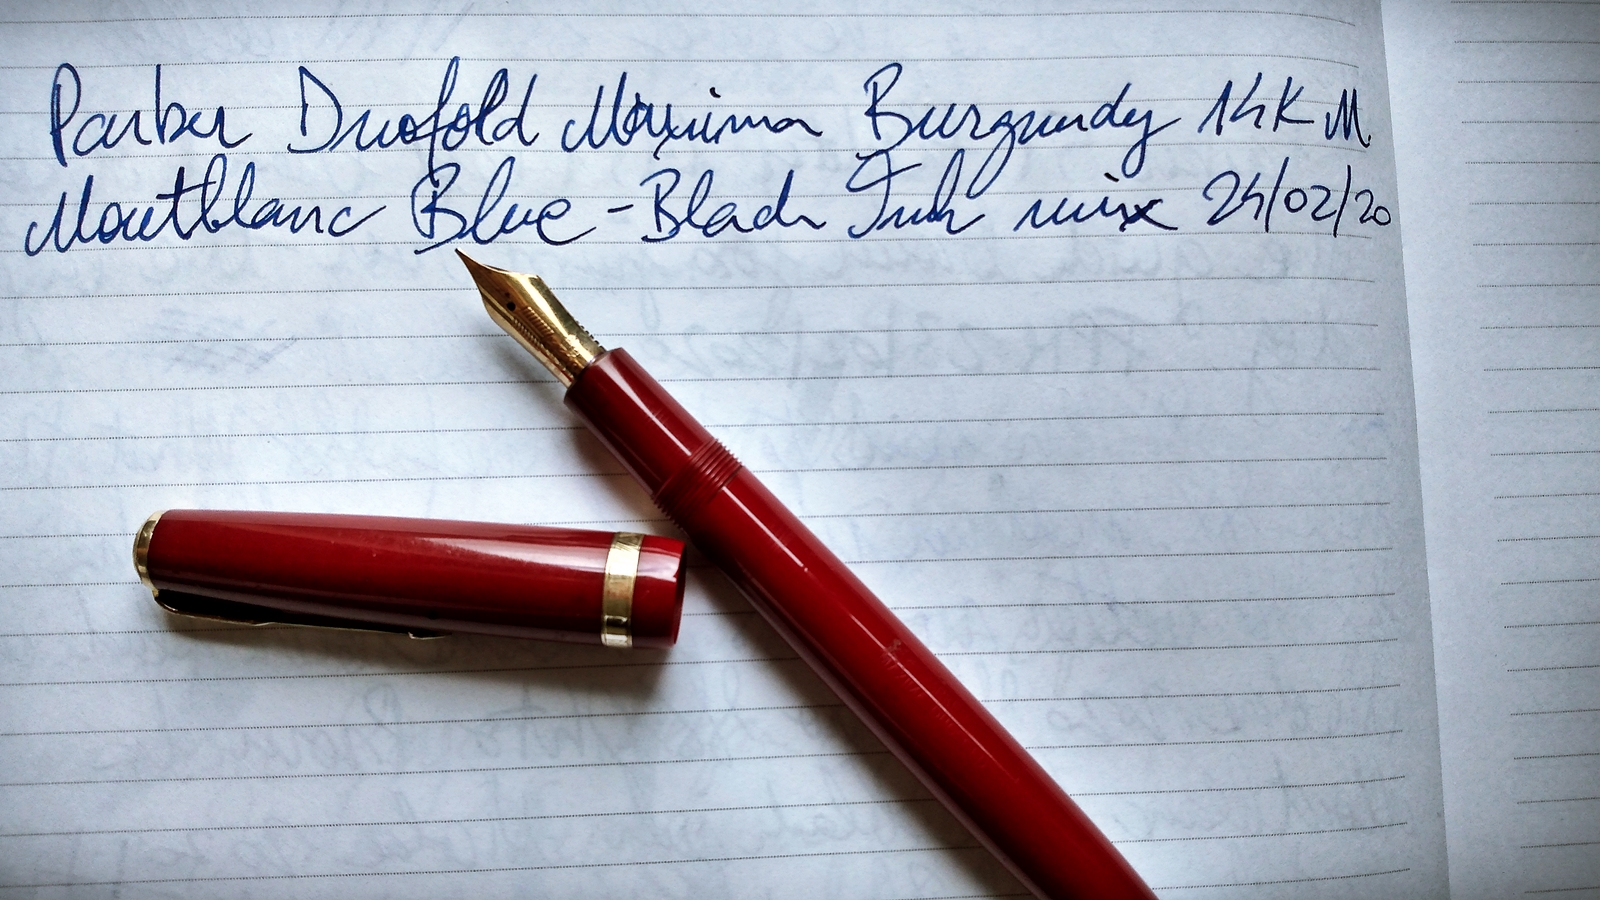 Parker Duofold Maxima Burgundy 14K M.
Montblanc Blue-Black Ink mix 24/02/20